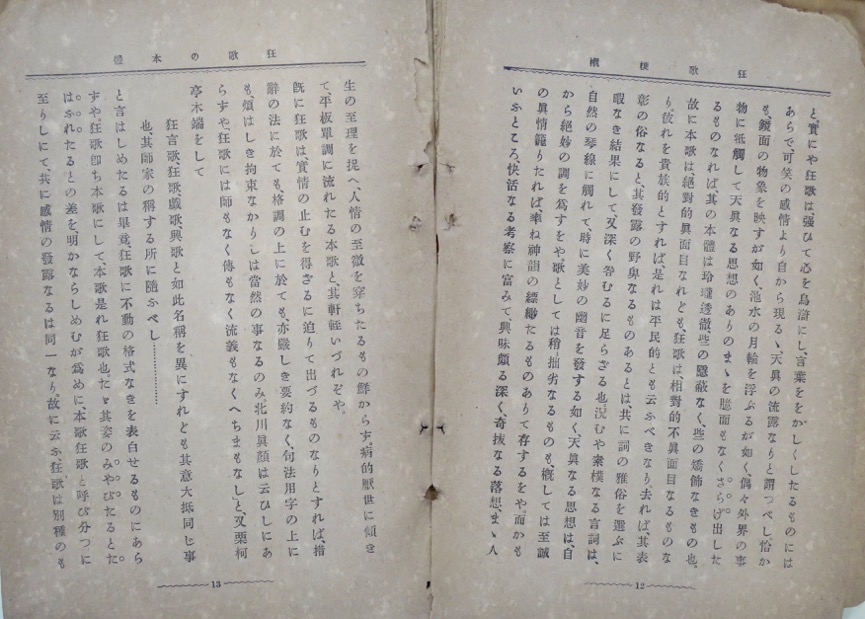 狂歌梗概
と、實にや狂歌は、强ひて心を烏滸にし、言葉ををかしくしたるものには
あらで、可笑の感情より自から現るゝ天眞の流露なりと謂つべし、恰か
も、鏡面の物象を映すが如く、池水の月輪を浮ぶるが如く、偶々外界の事
物に牴觸して天眞なる思想のありのまゝを臆面もなくさらけ出した
るものなれば、其の本體は玲瓏透徹些の隱蔽なく、些の矯飾なきもの也。
故に本歌は絕對的眞面目なれども、狂歌は、相對的不眞面目なるものな
り、彼れを貴族的とすれば、是れは平民的とも云ふべきなり、去れば、其表
彰の俗なると、其發露の野卑なるものあるとは、共に詞の雅俗を選ぶに
暇なき結果にして、又深く咎むるに足らざる也、況むや素樸なる言詞は、
自然の琴線に觸れて、時に美妙の幽音を發する如く、天眞なる思想は、自
から絕妙の調を爲すをや、歌としては稽拙劣なるものも、槪しては至誠
の眞情籠りたれば、率ね神韻の縹緲たるものありて存するをや、而かも
いふところ、快活なる考察に富みて、興味頗る深く、奇拔なる落想、まゝ人
12
狂歌の本體
生の至理を捉へ、人情の至微を穿ちたるもの鮮からず、病的厭世に傾き
て、平板單調に流れたる本歌と、其軒輊いづれぞや。
旣に狂歌は、實情の止むを得ざるに迫りて出づるものなりとすれば、措
辭の法に於ても、格調の上に於ても、亦嚴しき要約なく、句法用字の上に
も、煩はしき拘束なかりしは當然の事なるのみ、北川眞顏は云ひしにあ
らずや、狂歌には師もなく傳もなく流義もなくへちまもなしと、又栗柯
亭木端をして
狂言歌狂歌戲歌興歌と如此名稱を異にすれとも其意大抵同じ事
也、其師家の稱する所に隨ふべし…………
と言はしめたるは畢竟、狂歌に不動の格式なきを表白せるものにあら
ずや、狂歌卽ち本歌にして、本歌是れ狂歌也。たゞ其姿のみやびたるとた
はふれたるとの差を明かならしめむが爲めに、本歌狂歌と呼び分つに
至りしにて、共に感情の發露なるは同一なり、故に云ふ、狂歌は別種のも
13